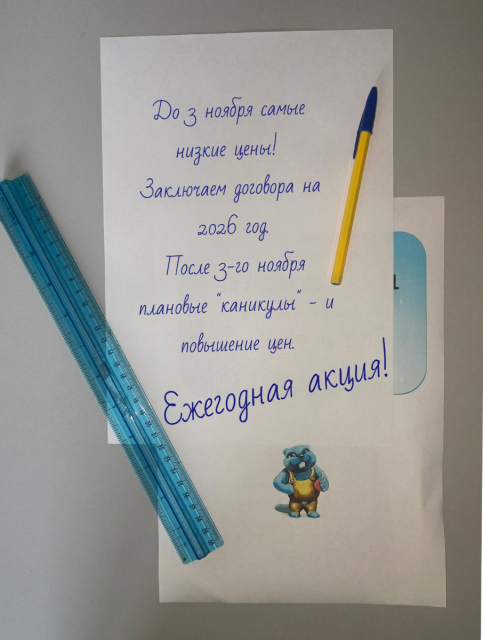 До 3 ноября самые
низкие цены!
Заключаем договора на
2026 год.
После 3-го ноября
плановые "каникулы" - и
повышение цен.
Ежегодная акция!